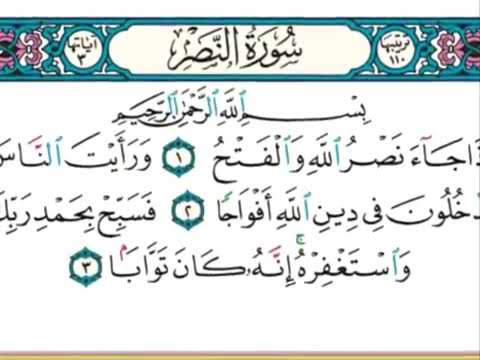 ترتيبها ١١٠ سُورَةُ النَّصْرِ آياتها ٣
بِسْمِ ٱللَّهِ ٱلرَّحْمَٰنِ ٱلرَّحِيمِ
ذَا جَآءَ نَصْرُ ٱللَّهِ وَٱلْفَتْحُ ١ وَرَأَيْتَ ٱلنَّاسَ
دْخُلُونَ فِى دِينِ ٱللَّهِ أَفْوَاجًا ٢ فَسَبِّحْ بِحَمْدِ رَبِّكَ
وَٱسْتَغْفِرْهُ ۚ إِنَّهُۥ كَانَ تَوَّابًۢا ٣